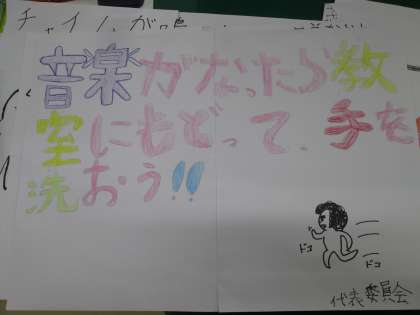 チャイ
音楽がなったら教
室にもどって、手を
洗おう!!
ドコ
ドコ
代表委員会